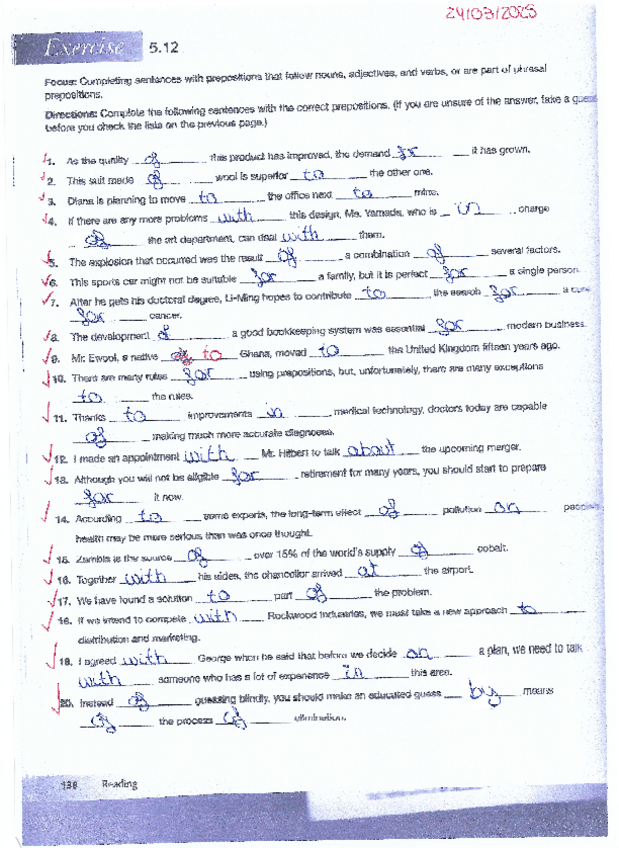 24/03/2025
Exercise 5.12
Focus: Completing sentences with prepositions that follow nouns, adjectives, and verbs, or are part of phrasal
prepositions.
Directions: Complete the following sentences with the correct prepositions. (If you are unsure of the answer, take a guess
before you check the lists on the previous page.)
1. As the quality of this product has improved, the demand for it has grown.
2. This suit made of wool is superior to the other one.
3. Diana is planning to move to the office next to mine.
4. If there are any more problems with this design, Ms. Yamada, who is in charge
of the art department, can deal with them.
5. The explosion that occurred was the result of a combination of several factors.
6. This sports car might not be suitable for a family, but it is perfect for a single person.
7. After he gets his doctoral degree, Li-Ming hopes to contribute to the search for a cure
for cancer.
8. The development of a good bookkeeping system was essential for modern business.
9. Mr. Ewool, a native to Ghana, moved to the United Kingdom fifteen years ago.
10. There are many rules for using prepositions, but, unfortunately, there are many exceptions
to the rules.
11. Thanks to improvements in medical technology, doctors today are capable
of making much more accurate diagnoses.
12. I made an appointment with Mr. Hilbert to talk about the upcoming merger.
13. Although you will not be eligible for retirement for many years, you should start to prepare
for it now.
14. According to some experts, the long-term effect of pollution on people's
health may be more serious than was once thought.
15. Zambia is the source of over 15% of the world's supply of cobalt.
16. Together with his aides, the chancellor arrived at the airport.
17. We have found a solution to part of the problem.
18. If we intend to compete with Rockwood Industries, we must take a new approach to
distribution and marketing.
19. I agreed with George when he said that before we decide on a plan, we need to talk
with someone who has a lot of experience in this area.
20. Instead of guessing blindly, you should make an educated guess by means
of the process of elimination.
138 Reading